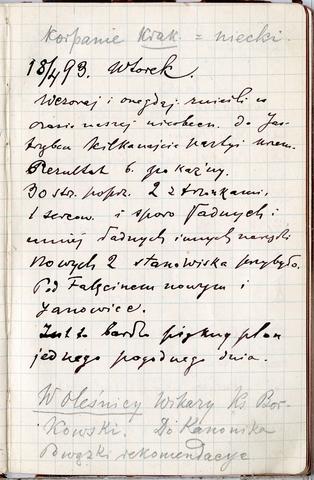 Korpanie Krak = niecki.
18/4 93. Wtorek.
Wczoraj i onegdaj znieśli w
czasie naszej nieobecn. do Jas-
trzębca kilkanaście partyj krzem.
Rezultat b. pokaźny.
30 str. poprz. 2 z trzonkami,
1 sercow. i sporo ładnych i
mniej ładnych innych narzędzi
Nowych 2 stanowiska przybyło.
Pod Falęcinem nowym i
Janowice.
Jest to bardzo piękny plon
jednego pogodnego dnia.
W Oleśnicy Wikary Ks Bor-
kowski. Do Kanonika
rekomendacye